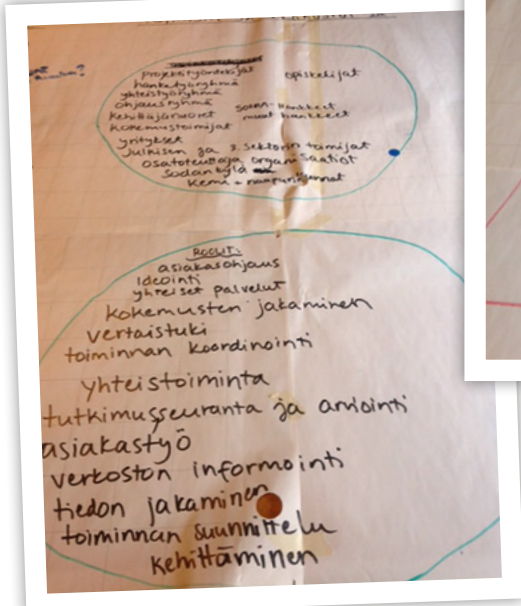 projektityöntekijät
opiskelijat
hanketyöryhmä
yhteistyöryhmä
ohjausryhmä
kehittäjänuoret
SOKRA-hankkeet
muut hankkeet
kokemustoimijat
yritykset
Julkisen ja 3. sektorin toimijat
osatoteuttaja organisaatiot
Sodankylä
Kemi + naapurikunnat
ROOLIT:
asiakasohjaus
Ideointi
yhteiset palvelut
kokemusten jakaminen
vertaistuki
toiminnan koordinointi
yhteistoiminta
tutkimusseuranta ja arviointi
asiakastyö
verkoston informointi
tiedon jakaminen
toiminnan suunnittelu
kehittäminen